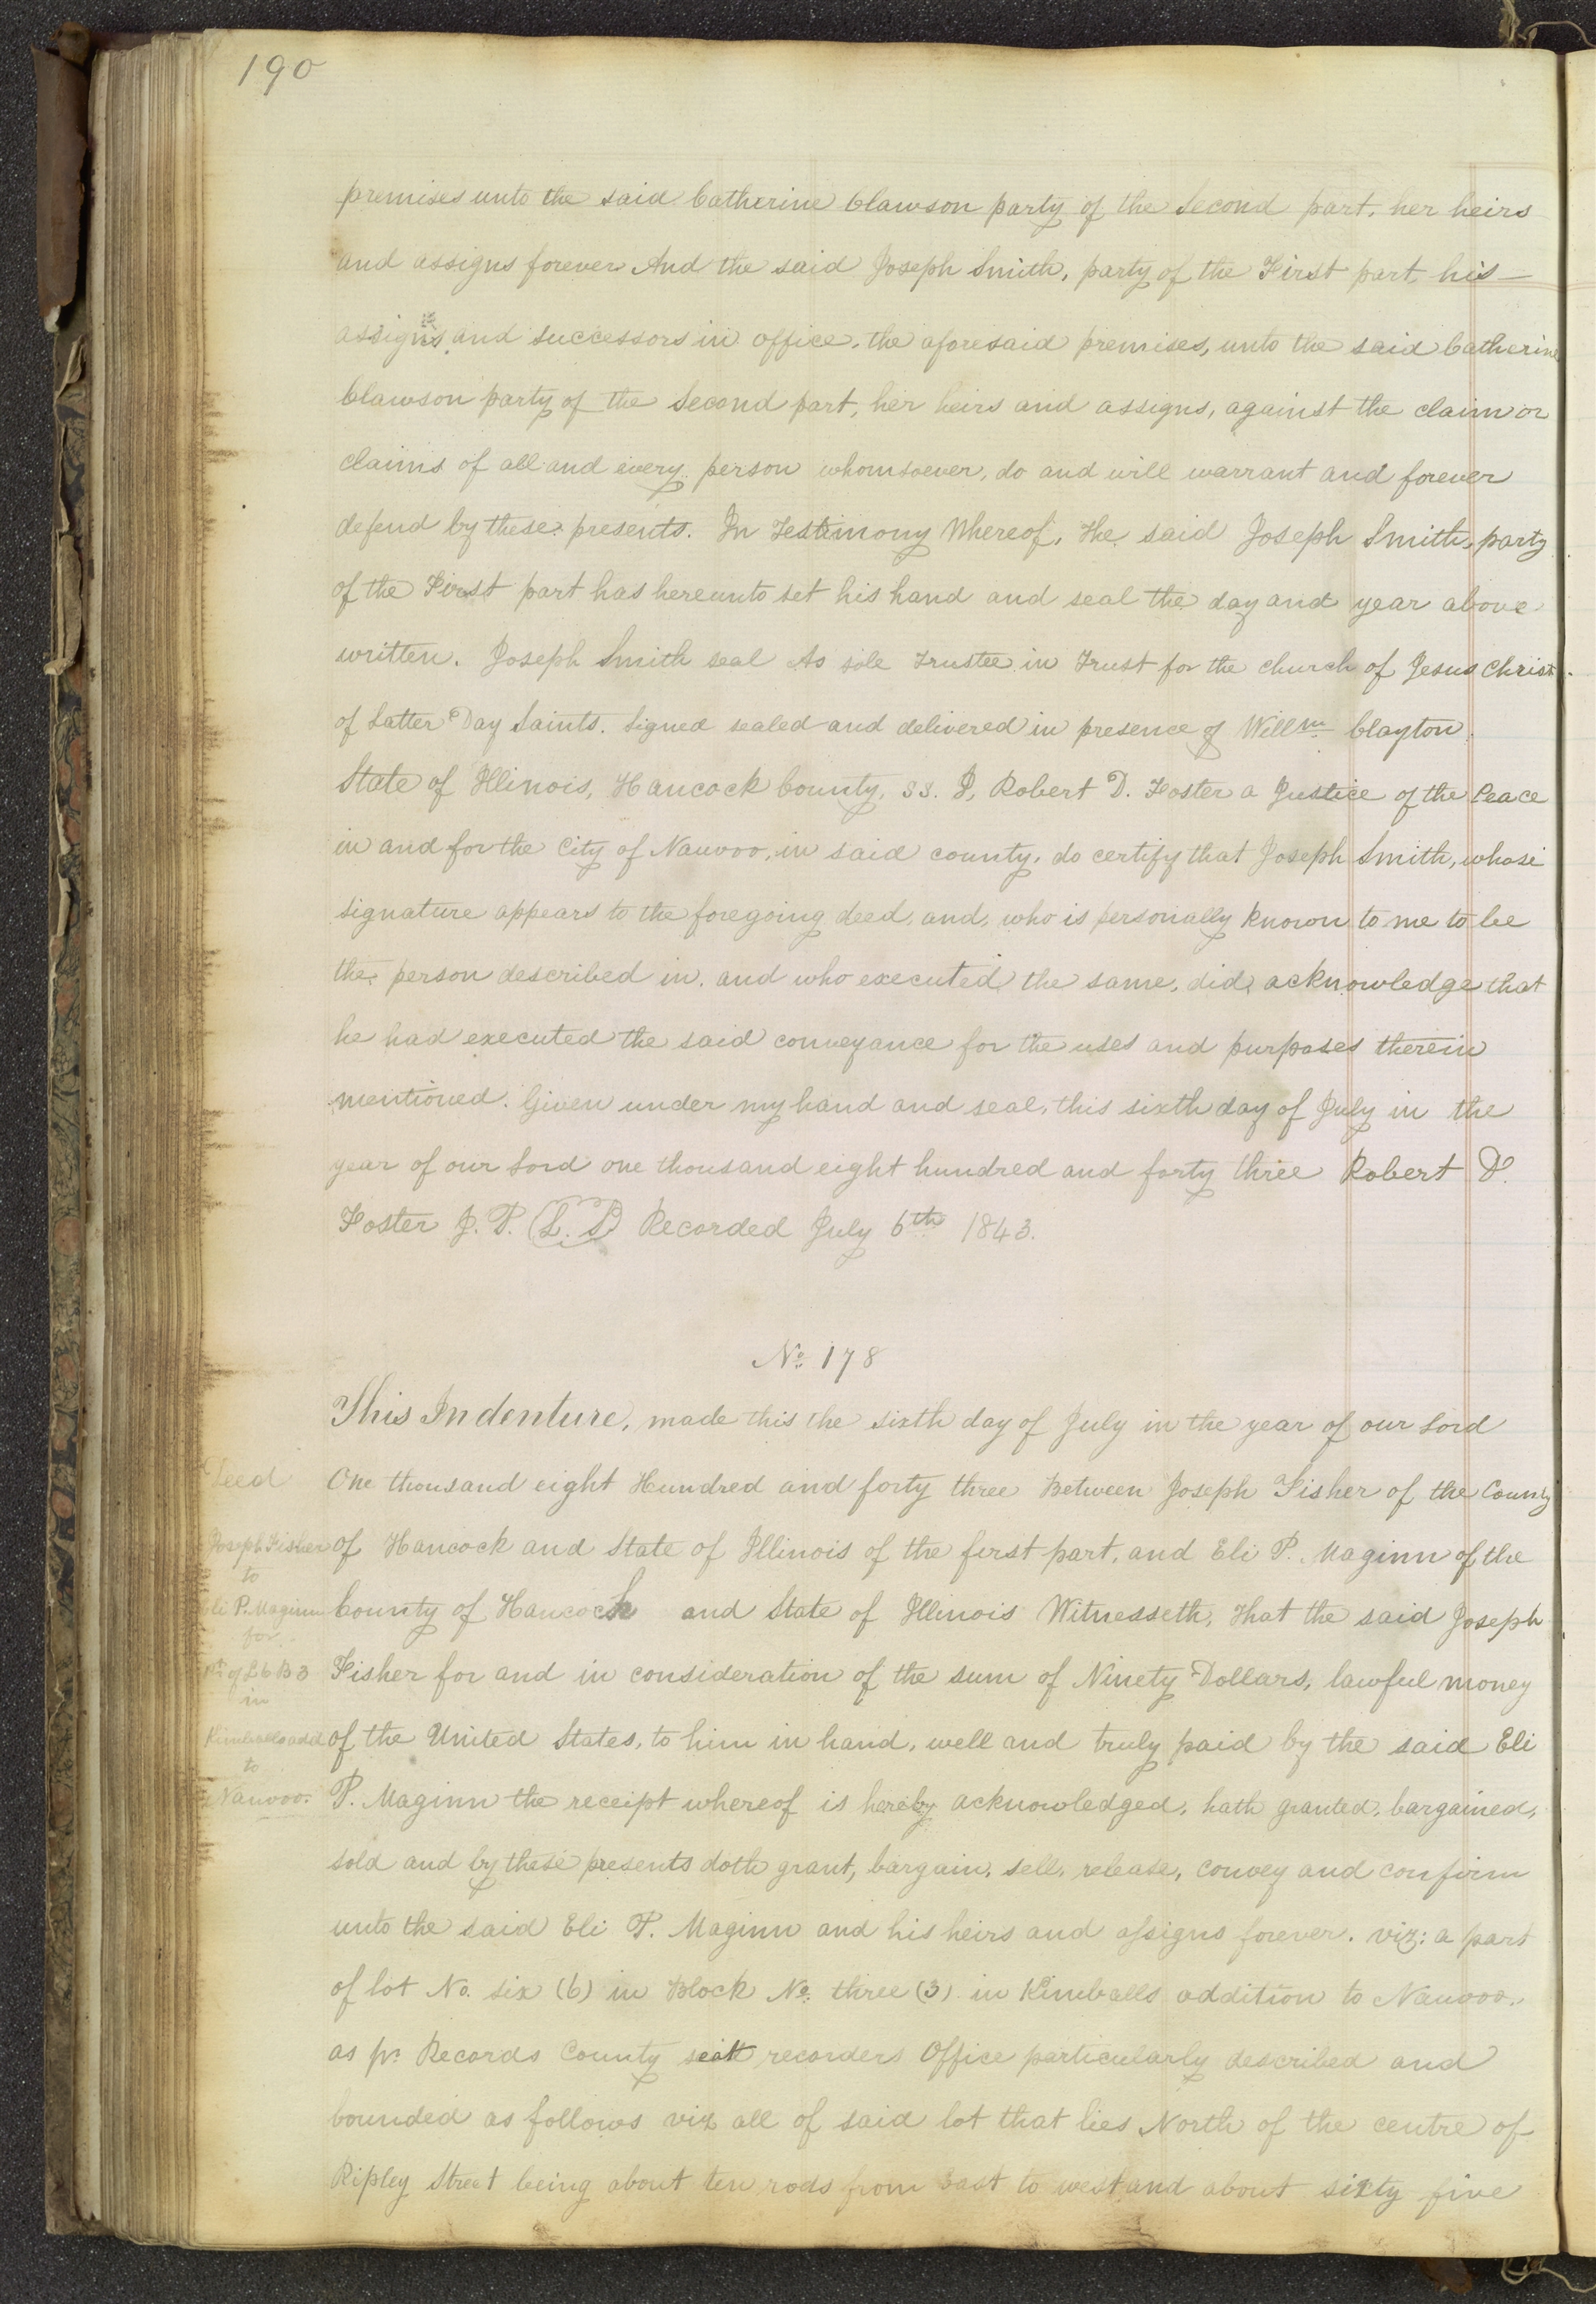 190
premises unto the said Catherine Clawson party of the Second part, her heirs
and assigns forever And the said Joseph Smith, party of the First part, his —
assigns and successors in office, the aforesaid premises, unto the said Catherine
Clawson party of the Second part, her heirs and assigns, against the claim or
claims of all and every person whomsoever, do and will warrant and forever
defend by these presents. In Testimony Whereof, The said Joseph Smith, party
of the First part has hereunto set his hand and seal the day and year above
written. Joseph Smith seal As sole Trustee in Trust for the church of Jesus Christ
of Latter Day Saints. Signed sealed and delivered in presence of Willm Clayton.
State of Illinois, Hancock County, ss. I, Robert D. Foster a Justice of the Peace
in and for the City of Nauvoo, in said county, do certify that Joseph Smith, whose
signature appears to the foregoing deed, and, who is personally known to me to be
the person described in, and who executed the same, did, acknowledge that
he had executed the said conveyance for the uses and purposes therein
mentioned. Given under my hand and seal, this sixth day of July in the
year of our Lord one thousand eight hundred and forty three Robert D.
Foster J. P. (L. S) Recorded July 6th 1843.
No. 178
This Indenture, made this the sixth day of July in the year of our Lord
One thousand eight Hundred and forty three Between Joseph Fisher of the County
of Hancock and State of Illinois of the first part, and Eli P. Maginn of the
County of Hancock and State of Illinois Witnesseth, That the said Joseph
Fisher for and in consideration of the sum of Ninety Dollars, lawful money
of the United States, to him in hand, well and truly paid by the said Eli
P. Maginn the receipt whereof is hereby acknowledged, hath granted, bargained,
sold and by these presents doth grant, bargain, sell, release, convey and confirm
unto the said Eli P. Maginn and his heirs and assigns forever. viz: a part
of lot No. six (6) in Block No. three (3) in Kimballs addition to Nauvoo.
as pr. Records County seat recorders Office particularly described and
bounded as follows viz all of said lot that lies North of the centre of
Ripley Street being about ten rods from East to west and about sixty five
Deed
Joseph Fisher
to
Eli P. Maginn
for
Pt of L 6 B 3
in
Kimballs add
to
Nauvoo.